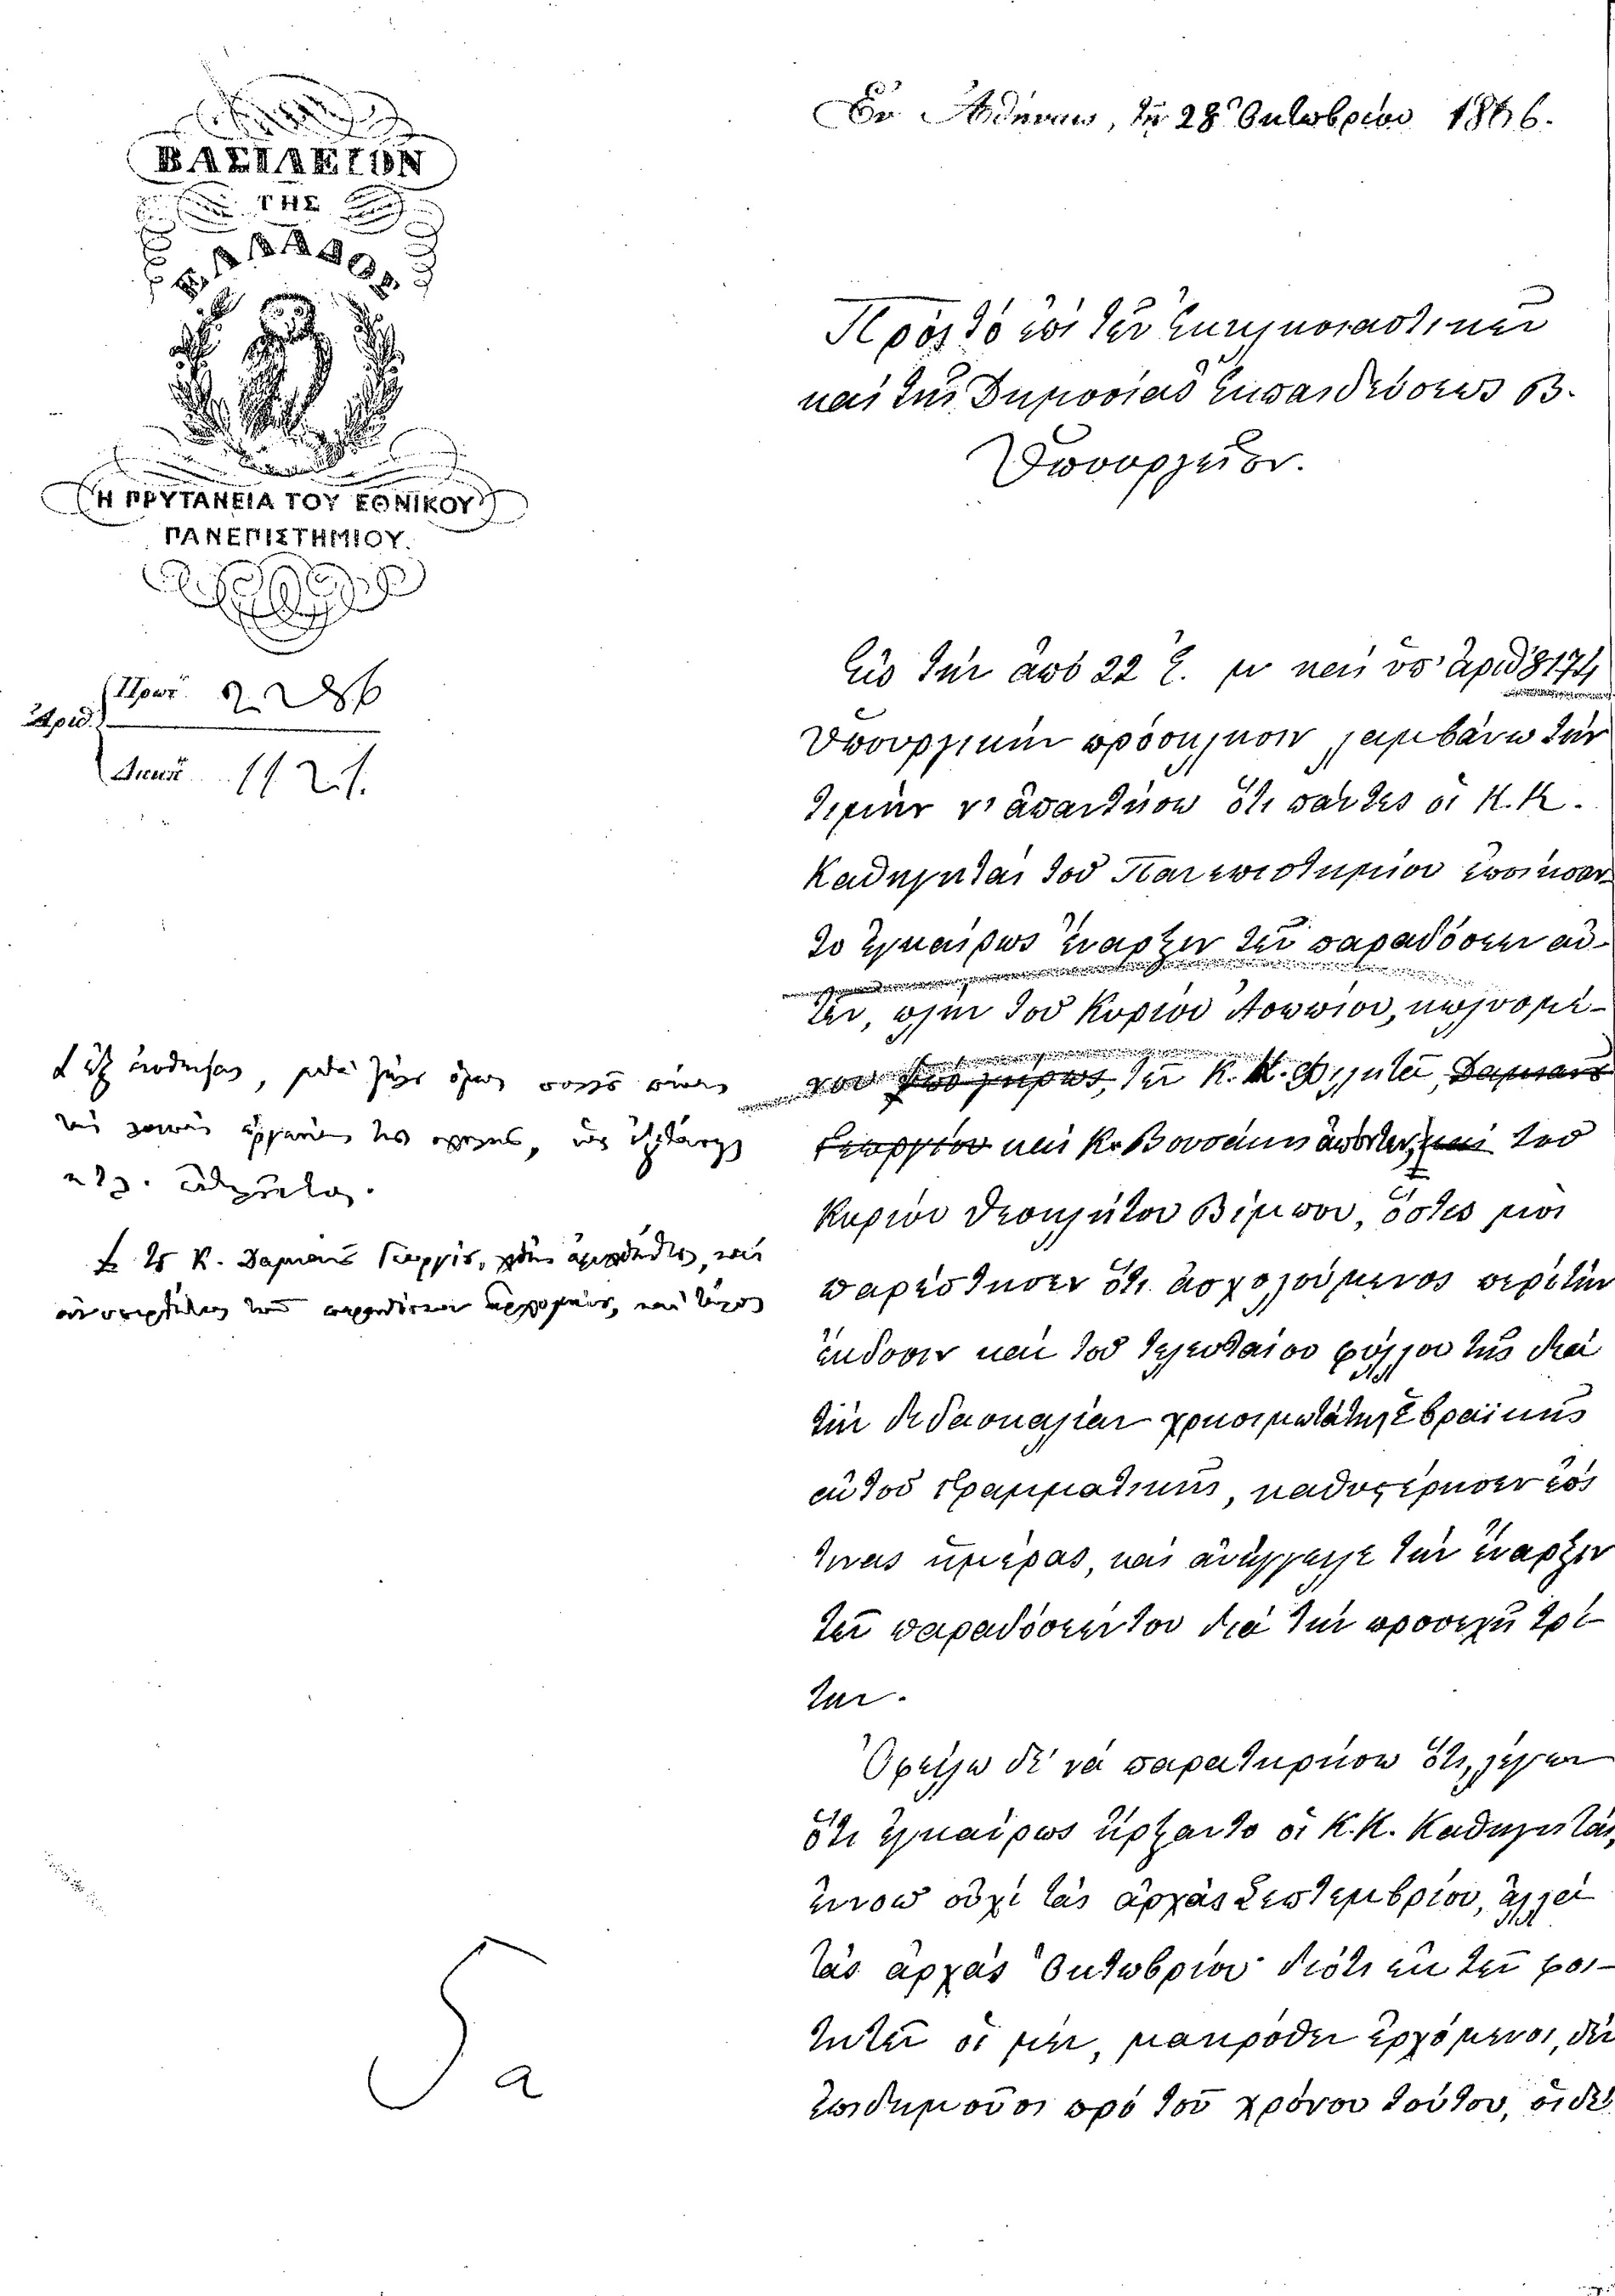 ΒΑΣΙΛΕΙΟΝ
ΤΗΣ
ΕΛΛΑΔΟΣ
Η ΠΡΥΤΑΝΕΙΑ ΤΟΥ ΕΘΝΙΚΟΥ
ΠΑΝΕΠΙΣΤΗΜΙΟΥ.
Πρωτ. 2286
Ἀριθ.
Διεκπ. 1121.
Ἐν Ἀθήναις, τῇ 28 Ὀκτωβρίου 1866.
Πρὸς τὸ ἐπὶ τῶν Ἐκκλησιαστικῶν
καὶ τῆς Δημοσίας Ἐκπαιδεύσεως Β.
Ὑπουργεῖον.
Εἰς τὴν ἀπὸ 22 ἐ. μ καὶ ὑπ' ἀριθ 8174
Ὑπουργικὴν πρόσκλησιν λαμβάνω τὴν
τιμὴν ν' ἀπαντήσω ὅτι πάντες οἱ Κ.Κ.
Καθηγηταὶ τοῦ Πανεπιστημίου ἐποιήσαν-
το ἐγκαίρως ἔναρξιν τῶν παραδόσεων αὐ-
τῶν, πλὴν τοῦ Κυρίου Λουπίου, κωλυομέ-
νου ὑπὸ γήρως, τῶν Κ.Κ. Φιλητᾶ, Δαμιανοῦ
Γεωργίου καὶ Κ. Βουσάκη ἀπόντων, καὶ τοῦ
Κυρίου Θεοκλήτου Βίμπου, ὅστις μοὶ
παρέστησεν ὅτι ἀσχολούμενος περὶ τὴν
ἔκδοσιν καὶ τοῦ τελευταίου φύλλου τῆς διὰ
τὴν διδασκαλίαν χρησιμωτάτης Ἑβραϊκῆς
αὐτοῦ Γραμματικῆς, καθυστέρησεν ἐπί
τινας ἡμέρας, καὶ ἀνήγγειλε τὴν ἔναρξιν
τῶν παραδόσεών του διὰ τὴν προσεχῆ Τρί-
την.
Ὀφείλω δὲ νὰ παρατηρήσω ὅτι, λέγων
ὅτι ἐγκαίρως ἤρξαντο οἱ Κ.Κ. Καθηγηταί,
ἐννοῶ οὐχὶ τὰς ἀρχὰς Σεπτεμβρίου, ἀλλὰ
τὰς ἀρχὰς Ὀκτωβρίου· διότι ἐκ τῶν φοι-
τητῶν οἱ μὲν, μακρόθεν ἐρχόμενοι, δὲν
ἐπιδημοῦσι πρὸ τοῦ χρόνου τούτου, οἱ δὲ
ἐξ ἀσθενείας,
τοῦ Κ. Δαμιανοῦ Γεωργίου, καὶ
τῶν παραδόσεων καὶ
5
α